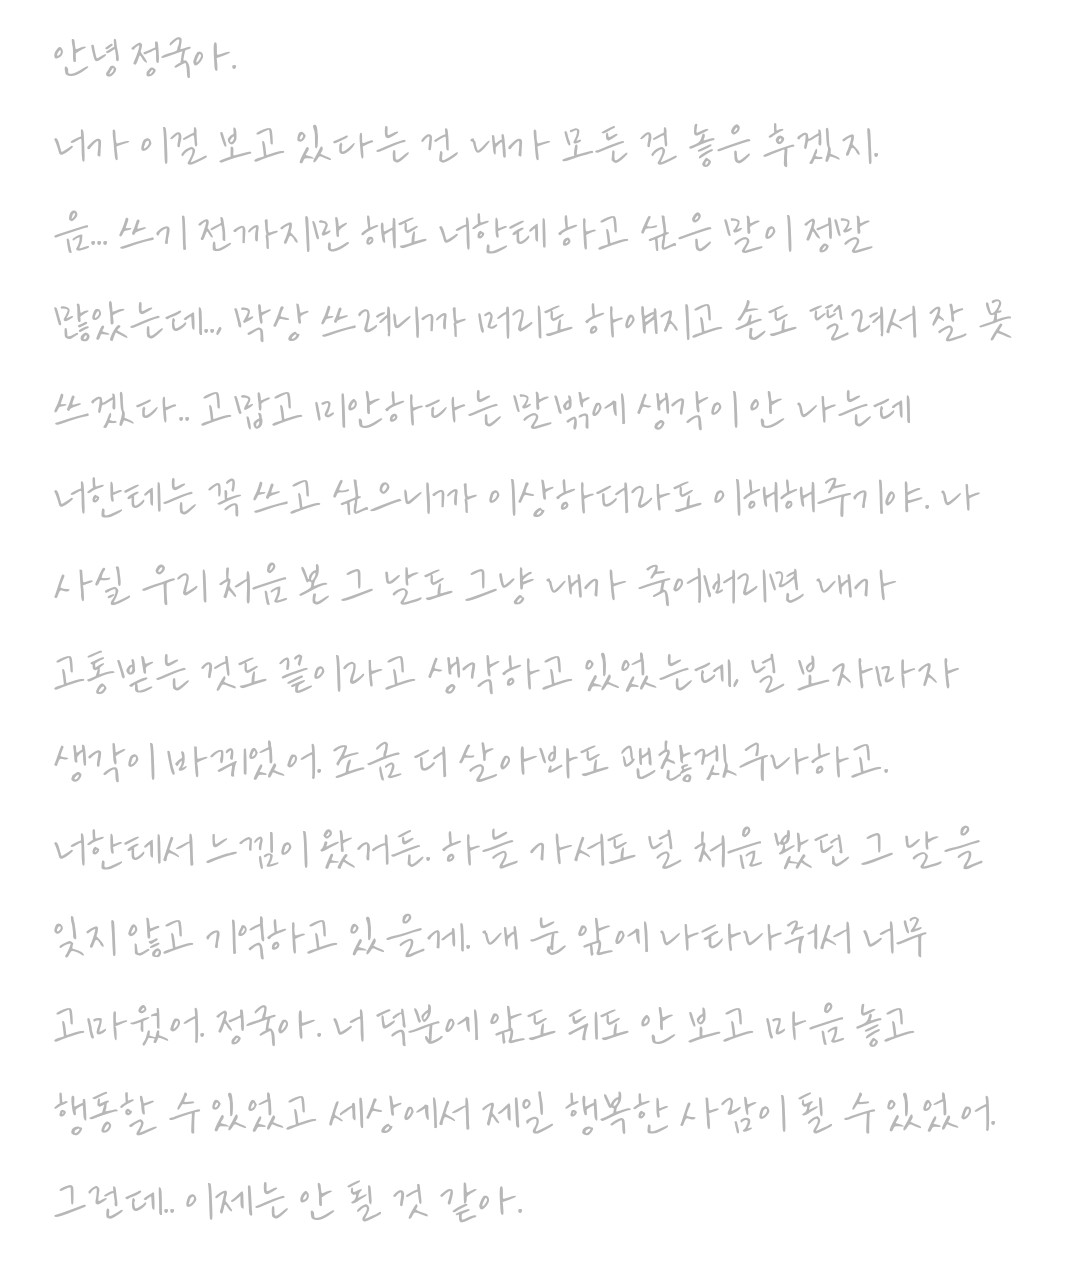 안녕 정국아.
너가 이걸 보고 있다는 건 내가 모든 걸 놓은 후겠지.
음... 쓰기 전까지만 해도 너한테 하고 싶은 말이 정말
많았는데.., 막상 쓰려니까 머리도 하얘지고 손도 떨려서 잘 못
쓰겠다.. 고맙고 미안하다는 말밖에 생각이 안 나는데
너한테는 꼭 쓰고 싶으니까 이상하더라도 이해해주기야. 나
사실 우리 처음 본 그 날도 그냥 내가 죽어버리면 내가
고통받는 것도 끝이라고 생각하고 있었는데, 널 보자마자
생각이 바뀌었어. 조금 더 살아봐도 괜찮겠구나하고.
너한테서 느낌이 왔거든. 하늘 가서도 널 처음 봤던 그 날을
잊지 않고 기억하고 있을게. 내 눈 앞에 나타나줘서 너무
고마웠어. 정국아. 너 덕분에 앞도 뒤도 안 보고 마음 놓고
행동할 수 있었고 세상에서 제일 행복한 사람이 될 수 있었어.
그런데.. 이제는 안 될 것 같아.